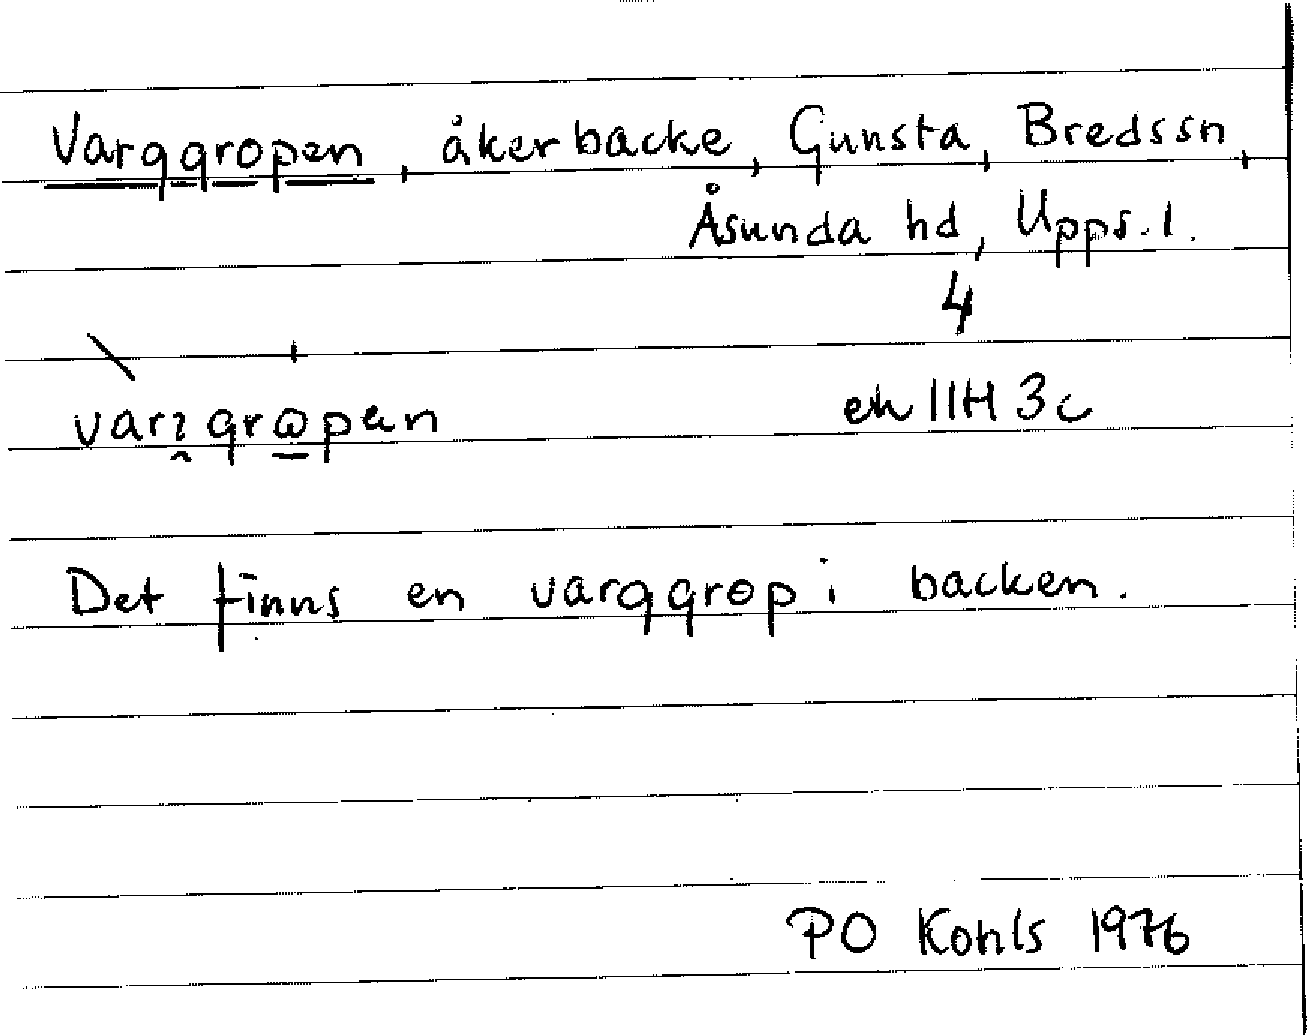 Varggropen, åkerbacke, Gunsta, Bredssn,
Åsunda hd, Upps.l.
4
ek 11H 3c
Det finns en varggrop i backen.
PO Kohls 1976